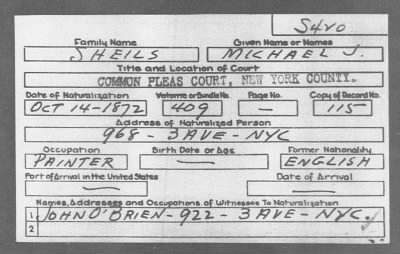 S420
Family Name Given Name or Names
SHEILS MICHAEL J.
Title and Location of Court
COMMON PLEAS COURT, NEW YORK COUNTY.
Date of Naturalization Volume or Bundle No. Page No. Copy of Record No.
OCT 14-1872 409 — 115
Address of Naturalized Person
968 - 3 AVE - NYC
Occupation Birth Date or Age Former Nationality
PAINTER — ENGLISH
Port of Arrival in the United States Date of Arrival
— —
Names, Addresses and Occupations of Witnesses To Naturalization
1 JOHN O'BRIEN - 922 - 3 AVE - NYC.
2